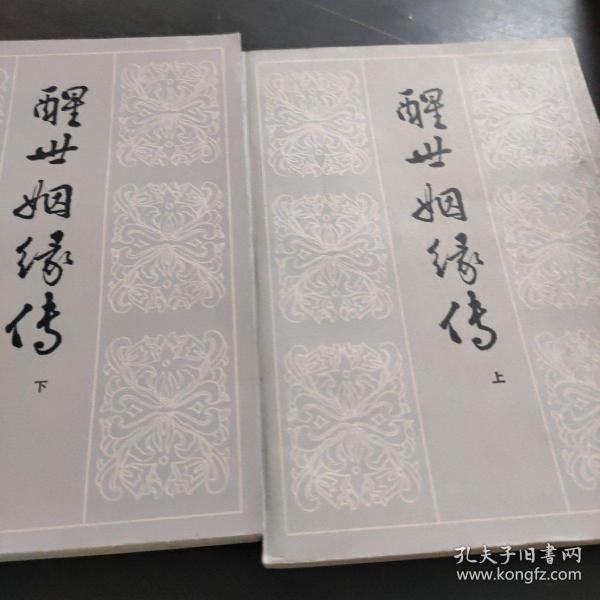 醒世姻缘传
下
醒世姻缘传
上
孔夫子旧书网
www.kongfz.com